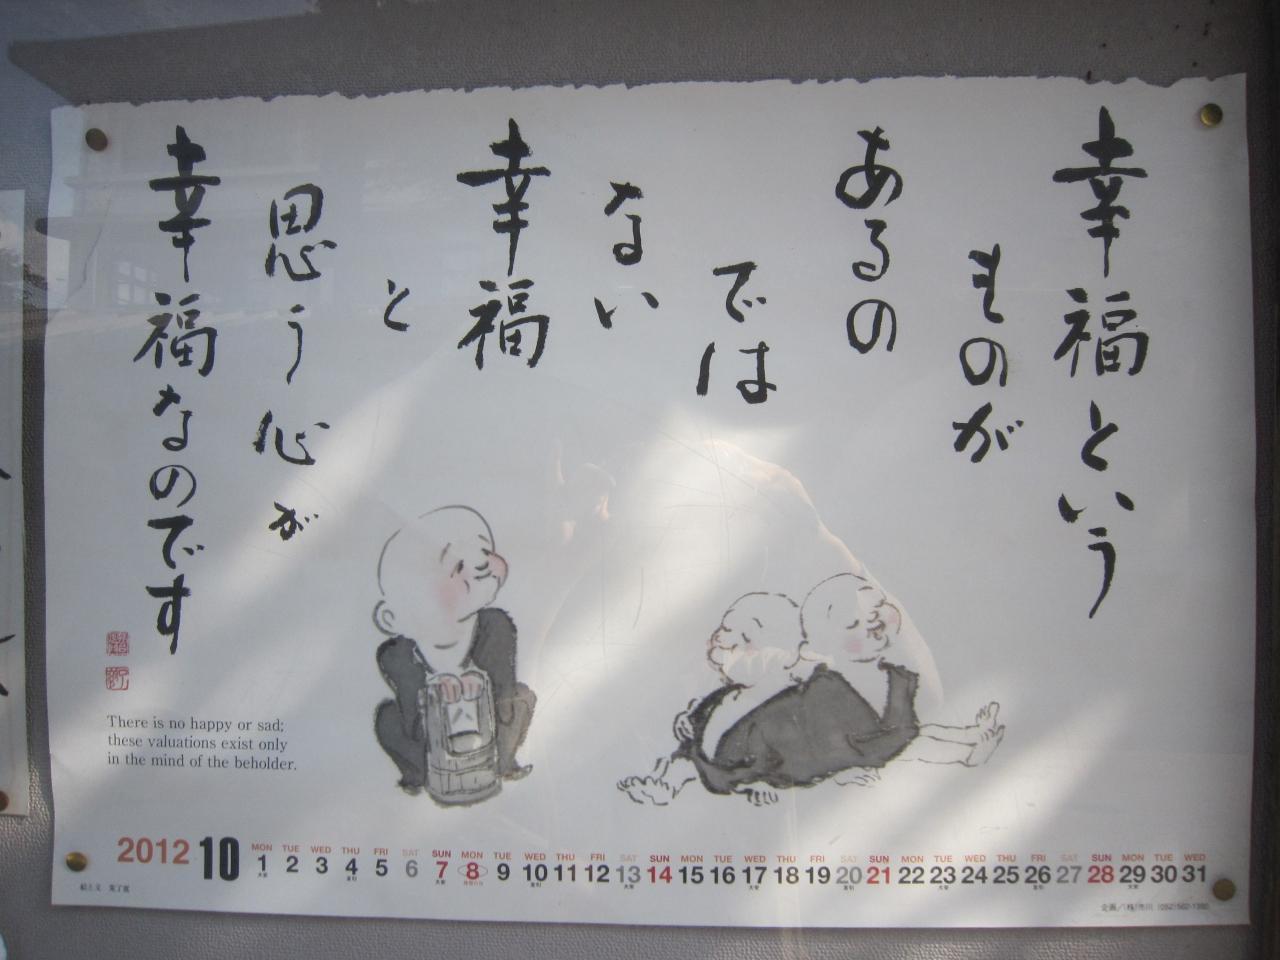 幸福という
ものが
あるの
では
ない
幸福
と
思う心が
幸福なのです
There is no happy or sad;
these valuations exist only
in the mind of the beholder.
2012 10
MON TUE WED THU FRI SAT SUN MON TUE WED THU FRI SAT SUN MON TUE WED THU FRI SAT SUN MON TUE WED THU FRI SAT SUN MON TUE WED
1 2 3 4 5 6 7 8 9 10 11 12 13 14 15 16 17 18 19 20 21 22 23 24 25 26 27 28 29 30 31